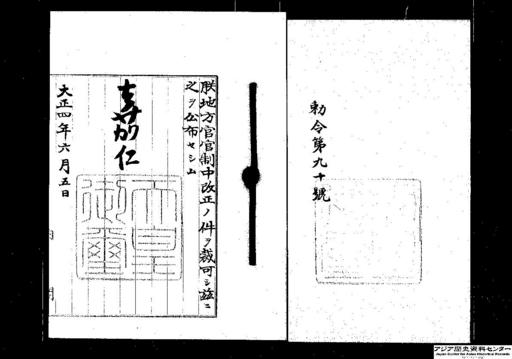 勅令第九十號
朕地方官官制中改正ノ件ヲ裁可シ茲ニ
之ヲ公布セシム
嘉仁
天皇
御璽
大正四年六月五日
アジア歴史資料センター
Japan Center for Asian Historical Records